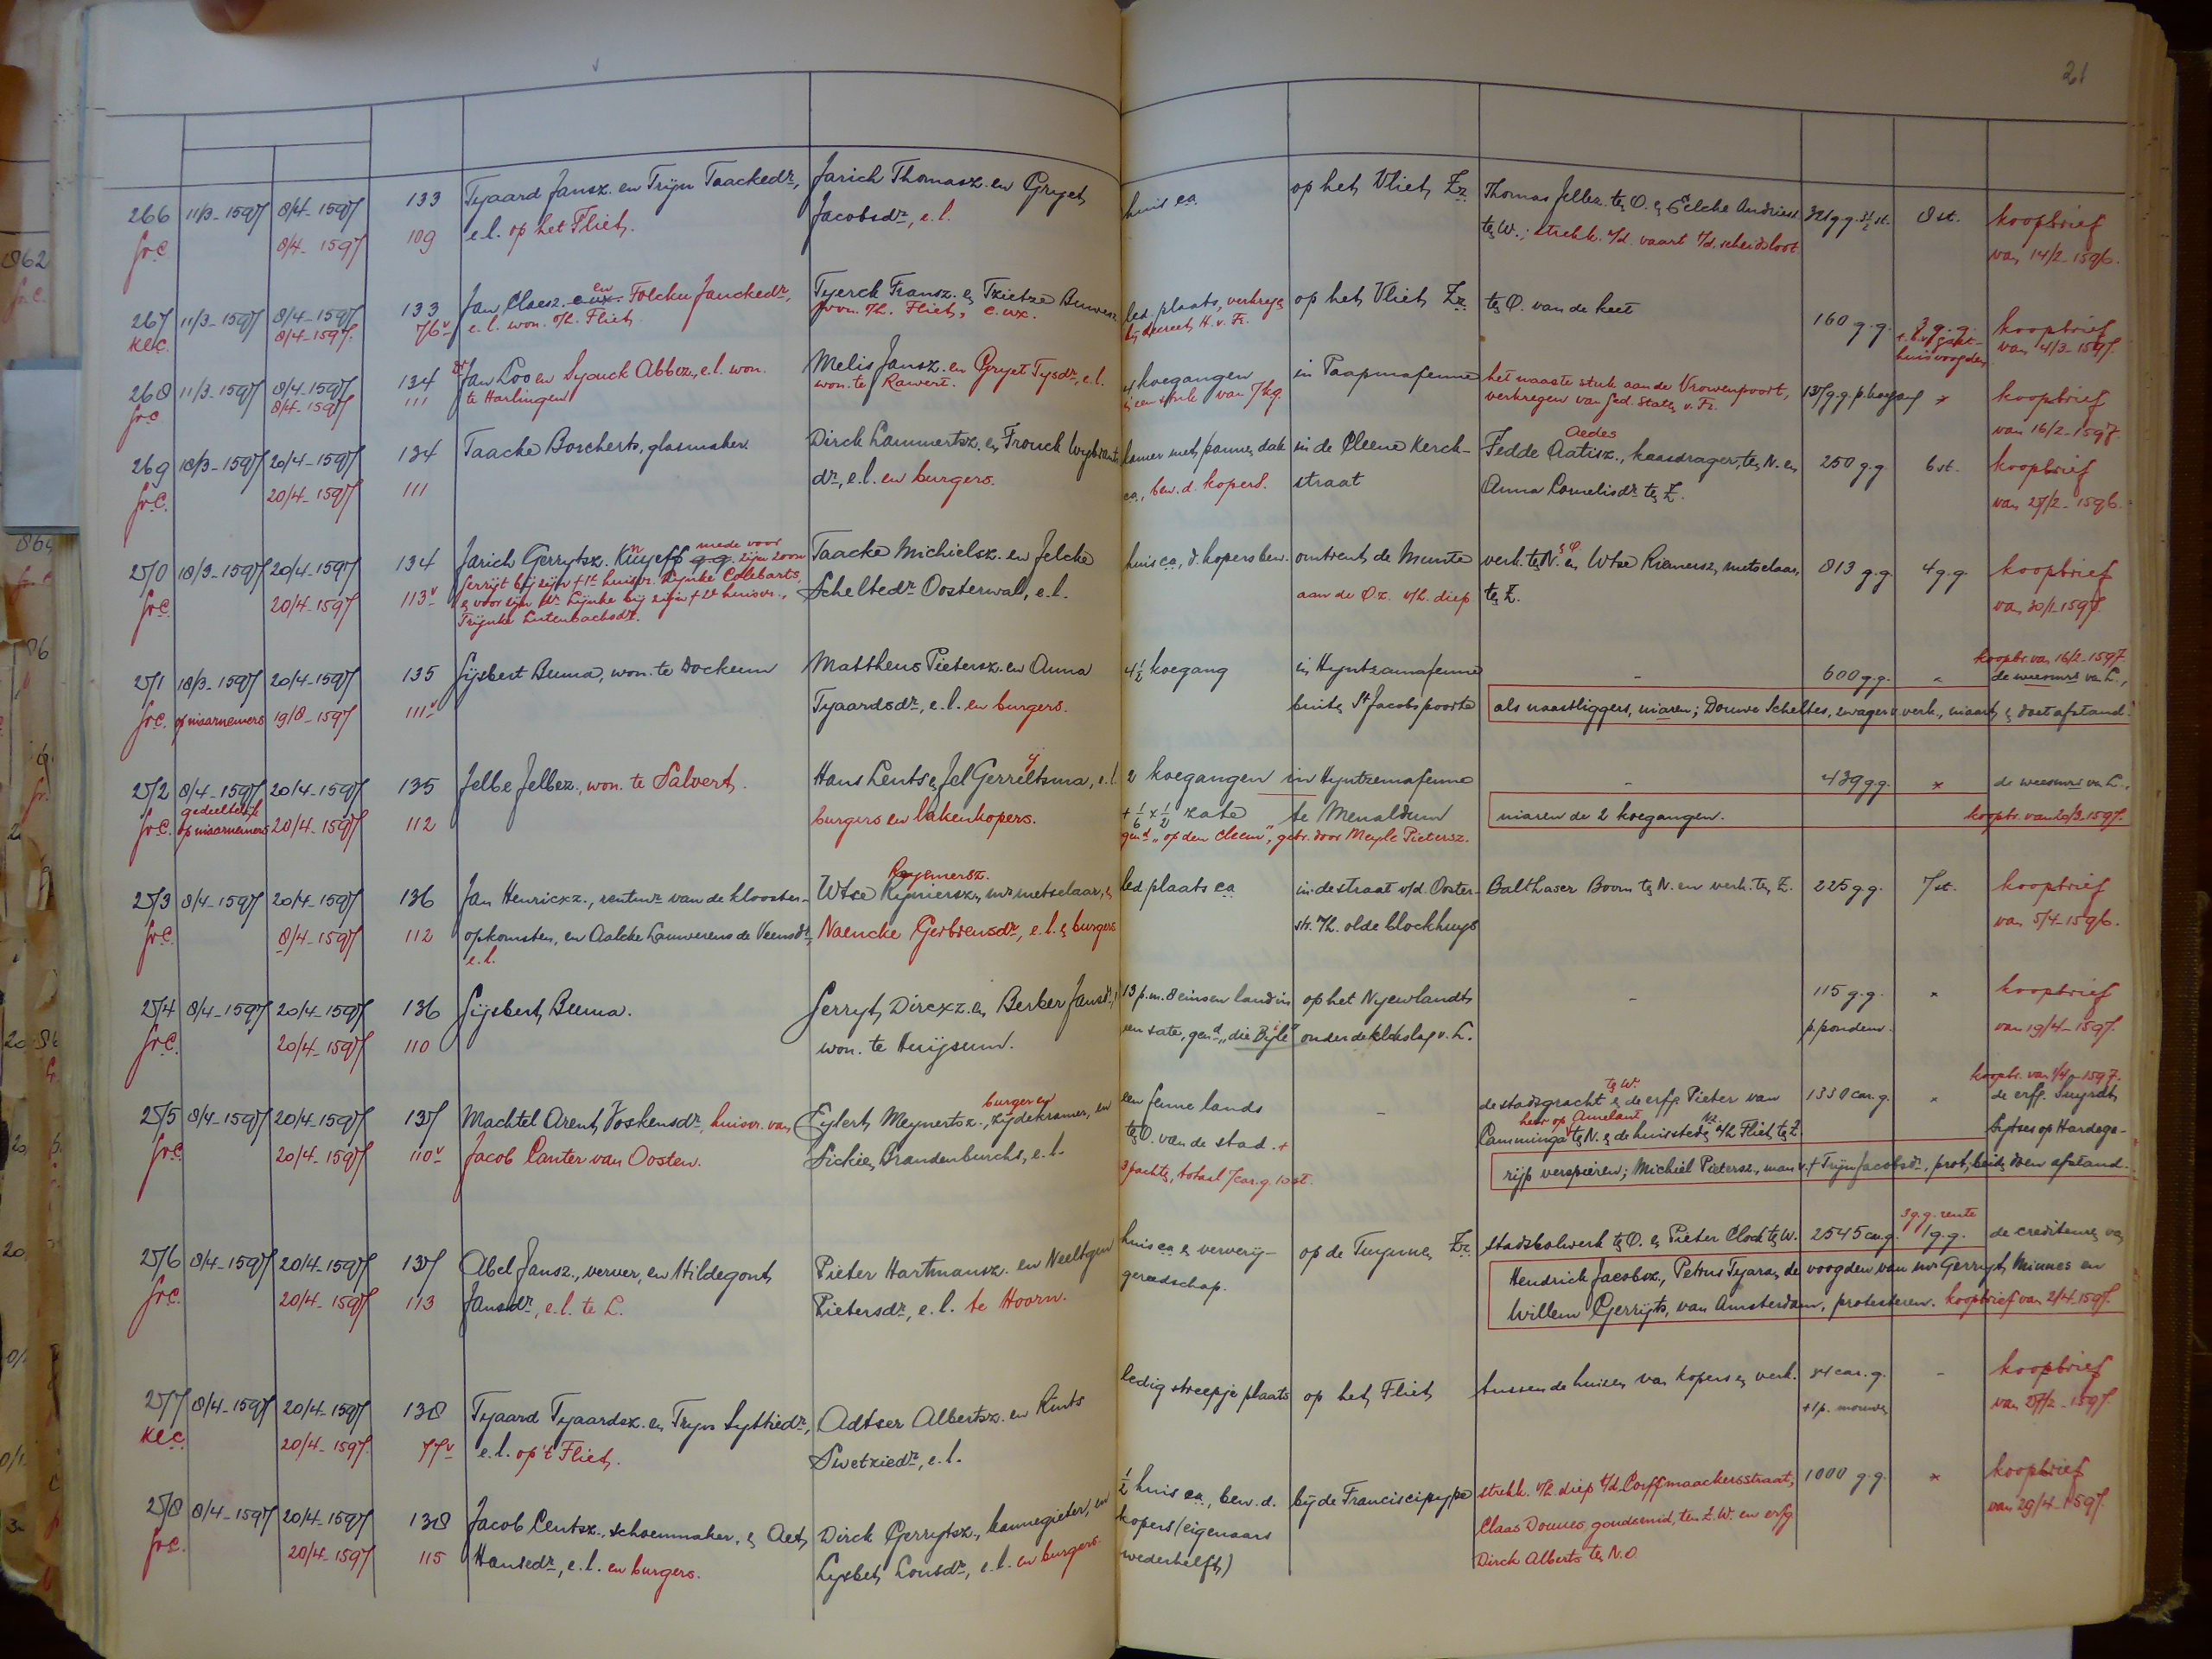 21
266 11/3-1597 8/4-1597 133 Tyaard Jansz. en Trijn Taackedr, Jarich Thomasz. en Gryet huis ca op het Vliet Zz Thomas Jellez. ten O. en Eelche Andriesz. 8 st. koopbrief
gr.C. 8/4-1597 109 e.l. op het Fliet. Jacobsdr, e.l. ten W.; strekk. v/d. vaart t/d. scheidsloot van 14/2-1596.
267 11/3-1597 8/4-1597 133 Jan Claesz. en Folcku Janckedr, Tyerck Fransz. en Tzietze led. plaats, verkregen op het Vliet Zz ten O. van de keet 160 g.g. koopbrief
KLC. 8/4-1597. 76v e.l. won. o/h. Fliet. won. o/h. Fliet, e. ux. bij decreet H. v. Fr. huisvoogden van 4/3-1597.
268 11/3-1597 8/4-1597 134 Jan Loo en Syouck Abbez., e.l. won. Melis Jansz. en Gryet Tysdr, e.l. 4 koegangen in Paapmafenne het naaste stuk aan de Vrouwenpoort, koopbrief
gr.C 8/4-1597 111 te Harlingen won. te Rawert. in een stuk van 7 kg. verkregen van Ged. Staten v. Fr. van 16/2-1597.
269 18/3-1597 20/4-1597 134 Taacke Borcherts, glasmaker. Dirck Lammertsz. en Frouck Wybrants kamer met pannen dak in de Cleene Kerck- Fedde Aatisz., Aedes kaasdrager, ten N. en 250 g.g. 6 st. koopbrief
gr.C. 20/4-1597 111 dr, e.l. en burgers. ca, bew. d. kopers. straat Anna Cornelisdr ten Z. van 27/2-1596.
270 18/3-1597 20/4-1597 134 Jarich Gerrytsz. Knyeff mede voor zijn zoon Taacke Michielsz. en Jelcke huis ca, d. kopers bew. omtrent de Munte verk. ten N. en O en Wtse Riemersz, metselaar, 813 g.g. 4 g.g. koopbrief
Gerrijt bij zijn + 1e huisvr. Lynke Collebarts,
gr.C. 20/4-1597 113v en voor zijn dr. Lijnke bij zijn + 2e huisvr., Scheltedr Oosterwal, e.l. aan de O.z. v/h. diep ten Z. van 30/1-1597.
Trijnke Lutenbachsdr.
271 18/3-1597 20/4-1597 135 Gijsbert Buma, won. te Dockum Mattheus Pietersz. en Anna 4½ koegang in Hyntzamafenne - 600 g.g. koopbr. van 16/2-1597. de weesmrs van L.,
gr.C. op niaarnemers 19/8-1597 111v Tyaardsdr, e.l. en burgers. buiten St Jacobspoorte als naastliggers, niaren; Douwe Scheltes, zwager v. verk., niaart, en doet afstand.
272 8/4-1597 20/4-1597 135 Jelbe Jelbez., won. te Salvert. Hans Lents en Jel Gerreltsma, e.l. 2 koegangen in Hyntzemafenne - 439 g.g. de weesmrs van L.,
gr.C. gedeeltelijk op niaarnemers 20/4-1597 112 burgers en lakenkopers. + 1/6 x 1/2 zate te Menaldum niaren de 2 koegangen. koopbr. van 20/3-1597.
gend "op den Cleem", gebr. door Meyle Pietersz.
273 8/4-1597 20/4-1597 136 Jan Henricxz., rentmr van de klooster- Wtse Reyniersz. Reyemersz. mr metselaar, en led. plaats ca in de straat v/d. Ooster- Balthaser Boorn ten N. en verk. ten Z. 225 g.g. 7 st. koopbrief
gr.C. 8/4-1597 112 opkomsten, en Aalcke Lauwerens de Veensdr, Naencke Gerbrensdr, e.l. en burgers str. n/h. olde blockhuys van 5/4-1596.
e.l.
274 8/4-1597 20/4-1597 136 Gijsbert Buma. Gerryt Dircxz. en Berber Jansdr, 13 p.m. 8 einsen land in op het Nyewlandt - 115 g.g. koopbrief
gr.C. 20/4-1597 110 won. te Huijsum. een sate, gend "die Bijle" onder de klokslag v. L. p. pondemr. van 19/4-1597.
275 8/4-1597 20/4-1597 137 Machtel Arent Foskensdr, huisvr. van Eylert Meynertsz., burger en zydekramer, en een fenne lands - de stadsgracht ten W. en de erfg. Pieter van 1350 car.g. koopbr. van 1/4-1597. de erfg. Suyrdt
gr.C. 20/4-1597 110v Jacob Canter van Oosten. Sickien Brandenburchs, e.l. ten O. van de stad. + Camminga heer op Amelant ten N. en de huissteden o/h. Fliet ten Z. Sytses op Hardega-
3 pachten, totaal 7 car.g. 10 st. rijp verspieren; Michiel Pietersz., man v. + Trijn Jacobsdr, prot., beide doen afstand.
276 8/4-1597 20/4-1597 137 Abel Jansz., verver, en Hildegont Pieter Hartmansz. en Neeltgen huis ca en ververij- op de Tuynen Zz stadsbolwerk ten O. en Pieter Clock ten W. 2545 car.g. 3 g.g. rente 1 g.g. de crediteuren van
gr.C. 20/4-1597 113 Jansdr, e.l. te L. Pietersdr, e.l. te Hoorn. gereedschap. Hendrick Jacobsz., Petrus Tyara, de voogden van mr Gerryt Minnes en
Willem Gerryts, van Amsterdam, protesteren. koopbrief van 2/4-1597.
277 8/4-1597 20/4-1597 138 Tyaard Tyaardsz. en Tryn Syttiedr, Adtser Albertsz. en Rints ledig streepje plaats op het Fliet tussen de huizen van kopers en verk. 84 car.g. - koopbrief
KLC. 20/4-1597. 77v e.l. op 't Fliet. Swetziedr, e.l. van 27/2-1597.
278 8/4-1597 20/4-1597 138 Jacob Lentsz., schoenmaker, en Aet Dirck Gerrytsz., kannegieter, en ½ huis ca, bew. d. bij de Franciscipype strekk. v/h. diep t/d. Corffmaackersstraat, 1000 g.g. koopbrief
gr.C. 20/4-1597 115 Hansedr, e.l. en burgers. Lysbet Lonsdr, e.l. en burgers. kopers (eigenaars Claas Douues, goudsmid, ten Z.W. en erfg. van 29/4-1597.
wederhelft) Dirck Alberts ten N.O.